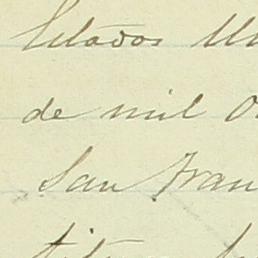 Estados Un
de mil o
San Fran